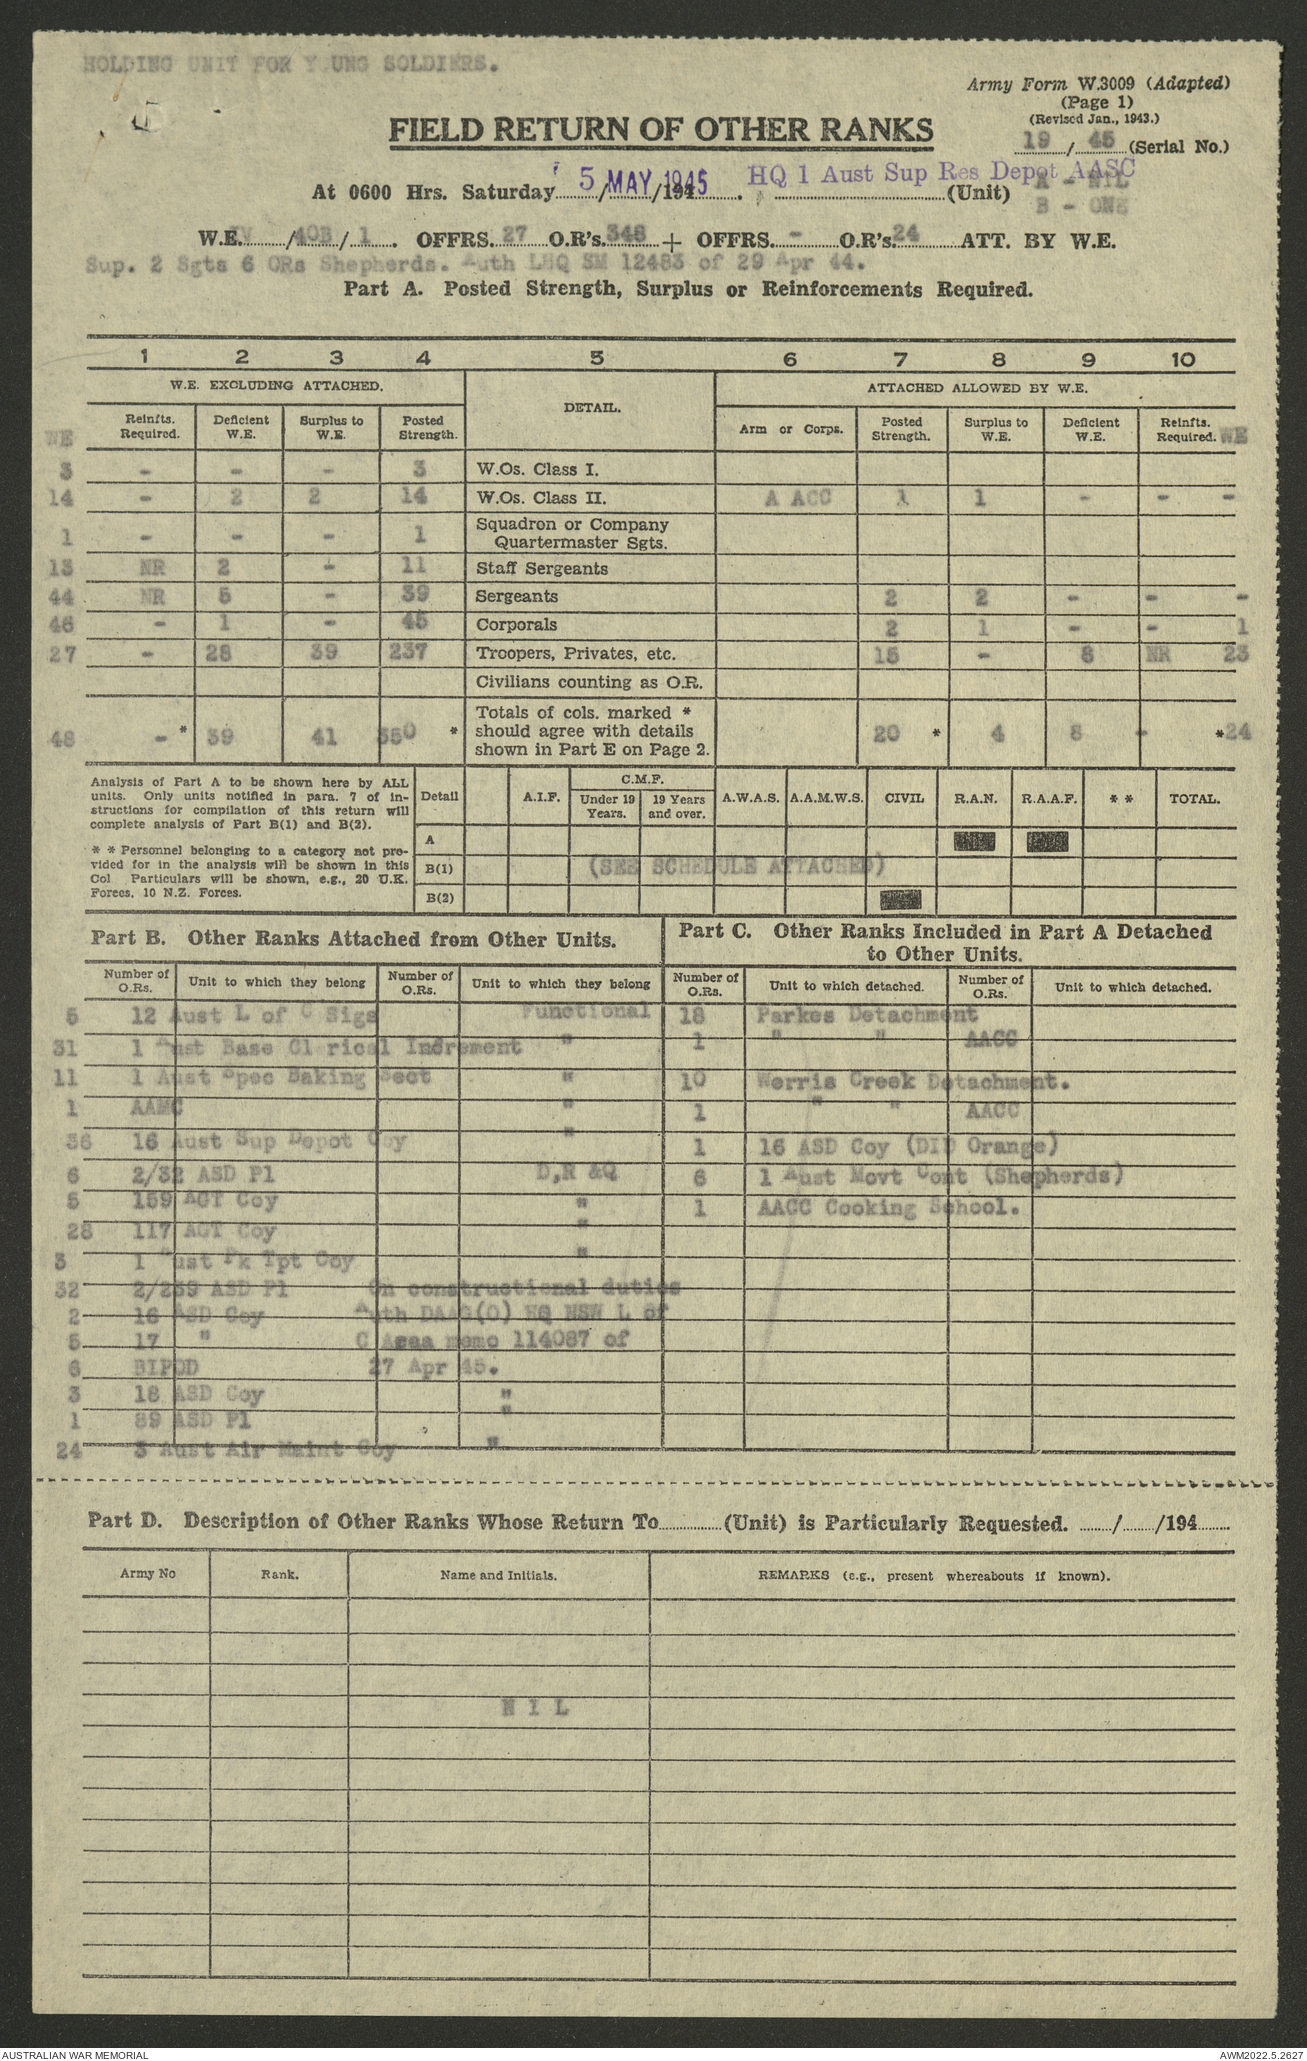 HOLDING UNIT FOR YOUNG SOLDIERS.
Army Form W.3009 (Adapted)
(Page 1)
(Revised Jan., 1943.)
19 / 45 (Serial No.)
FIELD RETURN OF OTHER RANKS
At 0600 Hrs. Saturday 5 MAY 1945 /194 . HQ 1 Aust Sup Res Depot AASC (Unit) A - NIL
B - ONE
W.E. IV /40B/ 1 . OFFRS. 27 O.R's. 348 + OFFRS. - O.R's. 24 ATT. BY W.E.
Sup. 2 Sgts 6 ORs Shepherds. Auth LHQ SM 12483 of 29 Apr 44.
Part A. Posted Strength, Surplus or Reinforcements Required.
1 2 3 4 5 6 7 8 9 10
W.E. EXCLUDING ATTACHED. DETAIL. ATTACHED ALLOWED BY W.E.
WE Reinfts. Required. Deficient W.E. Surplus to W.E. Posted Strength. Arm or Corps. Posted Strength. Surplus to W.E. Deficient W.E. Reinfts. Required. WE
3 - - - 3 W.Os. Class I.
14 - 2 2 14 W.Os. Class II. A ACC 1 1 - - -
1 - - - 1 Squadron or Company Quartermaster Sgts.
13 NR 2 - 11 Staff Sergeants
44 NR 5 - 39 Sergeants 2 2 - - -
46 - 1 - 45 Corporals 2 1 - - 1
27 - 28 39 237 Troopers, Privates, etc. 15 - 8 NR 23
Civilians counting as O.R.
48 - * 39 41 350 * Totals of cols. marked * should agree with details shown in Part E on Page 2. 20 * 4 8 - *24
Analysis of Part A to be shown here by ALL units. Only units notified in para. 7 of instructions for compilation of this return will complete analysis of Part B(1) and B(2).
* * Personnel belonging to a category not provided for in the analysis will be shown in this Col Particulars will be shown, e.g., 20 U.K. Forces, 10 N.Z. Forces.
Detail A.I.F. C.M.F. Under 19 Years. 19 Years and over. A.W.A.S. A.A.M.W.S. CIVIL R.A.N. R.A.A.F. * * TOTAL.
A
B(1) (SEE SCHEDULE ATTACHED)
B(2)
Part B. Other Ranks Attached from Other Units.
Part C. Other Ranks Included in Part A Detached to Other Units.
Number of O.Rs. Unit to which they belong Number of O.Rs. Unit to which they belong Number of O.Rs. Unit to which detached. Number of O.Rs. Unit to which detached.
5 12 Aust L of C Sigs Functional 18 Parkes Detachment
31 1 Aust Base Clerical Increment " 1 " " AACC
11 1 Aust Spec Baking Sect " 10 Werris Creek Detachment.
1 AAMC " 1 " " AACC
36 16 Aust Sup Depot Coy " 1 16 ASD Coy (DID Orange)
6 2/32 ASD Pl D,R &Q 6 1 Aust Movt Cont (Shepherds)
5 159 AGT Coy " 1 AACC Cooking School.
28 117 AGT Coy "
3 1 Aust Pk Tpt Coy "
32 2/259 ASD Pl On constructional duties
2 16 ASD Coy Auth DAAG(O) HQ NSW L of
5 17 " C Area memo 114087 of
6 BIPOD 27 Apr 45.
3 18 ASD Coy "
1 89 ASD Pl "
24 3 Aust Air Maint Coy "
Part D. Description of Other Ranks Whose Return To (Unit) is Particularly Requested. / /194
Army No Rank. Name and Initials. REMARKS (e.g., present whereabouts if known).
N I L
AUSTRALIAN WAR MEMORIAL AWM2022.5.2627